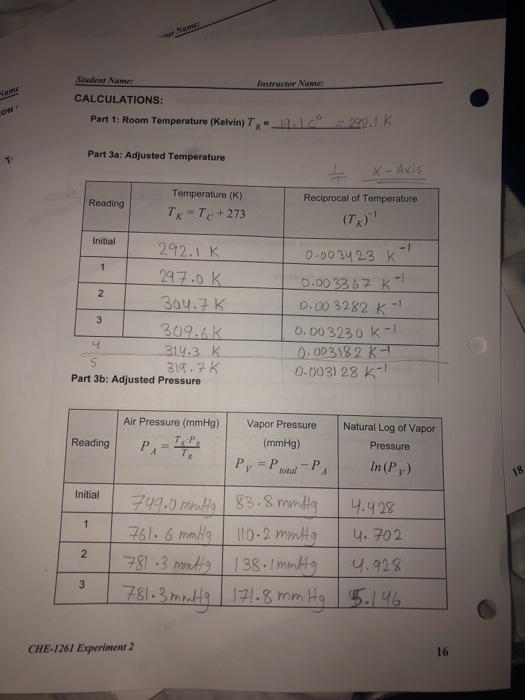 tor Name:
Name
ow
T
Student Name: Instructor Name:
CALCULATIONS:
Part 1: Room Temperature (Kelvin) T_R = 19.1 C° = 292.1 K
Part 3a: Adjusted Temperature
1/T X-Axis
Reading Temperature (K) Reciprocal of Temperature
T_K = T_C + 273 (T_K)^-1
Initial 292.1 K 0.003423 K^-1
1 297.0 K 0.003367 K^-1
2 304.7 K 0.003282 K^-1
3 309.6 K 0.003230 K^-1
4 314.3 K 0.003182 K^-1
5 319.7 K 0.003128 K^-1
Part 3b: Adjusted Pressure
Air Pressure (mmHg) Vapor Pressure Natural Log of Vapor
Reading (mmHg) Pressure
P_V = P_total - P_A ln(P_V)
Initial 749.0 mmHg 83.8 mmHg 4.428
1 761.6 mmHg 110.2 mmHg 4.702
2 781.3 mmHg 138.1 mmHg 4.928
3 781.3 mmHg 171.8 mm Hg 5.146
18
CHE-1261 Experiment 2 16